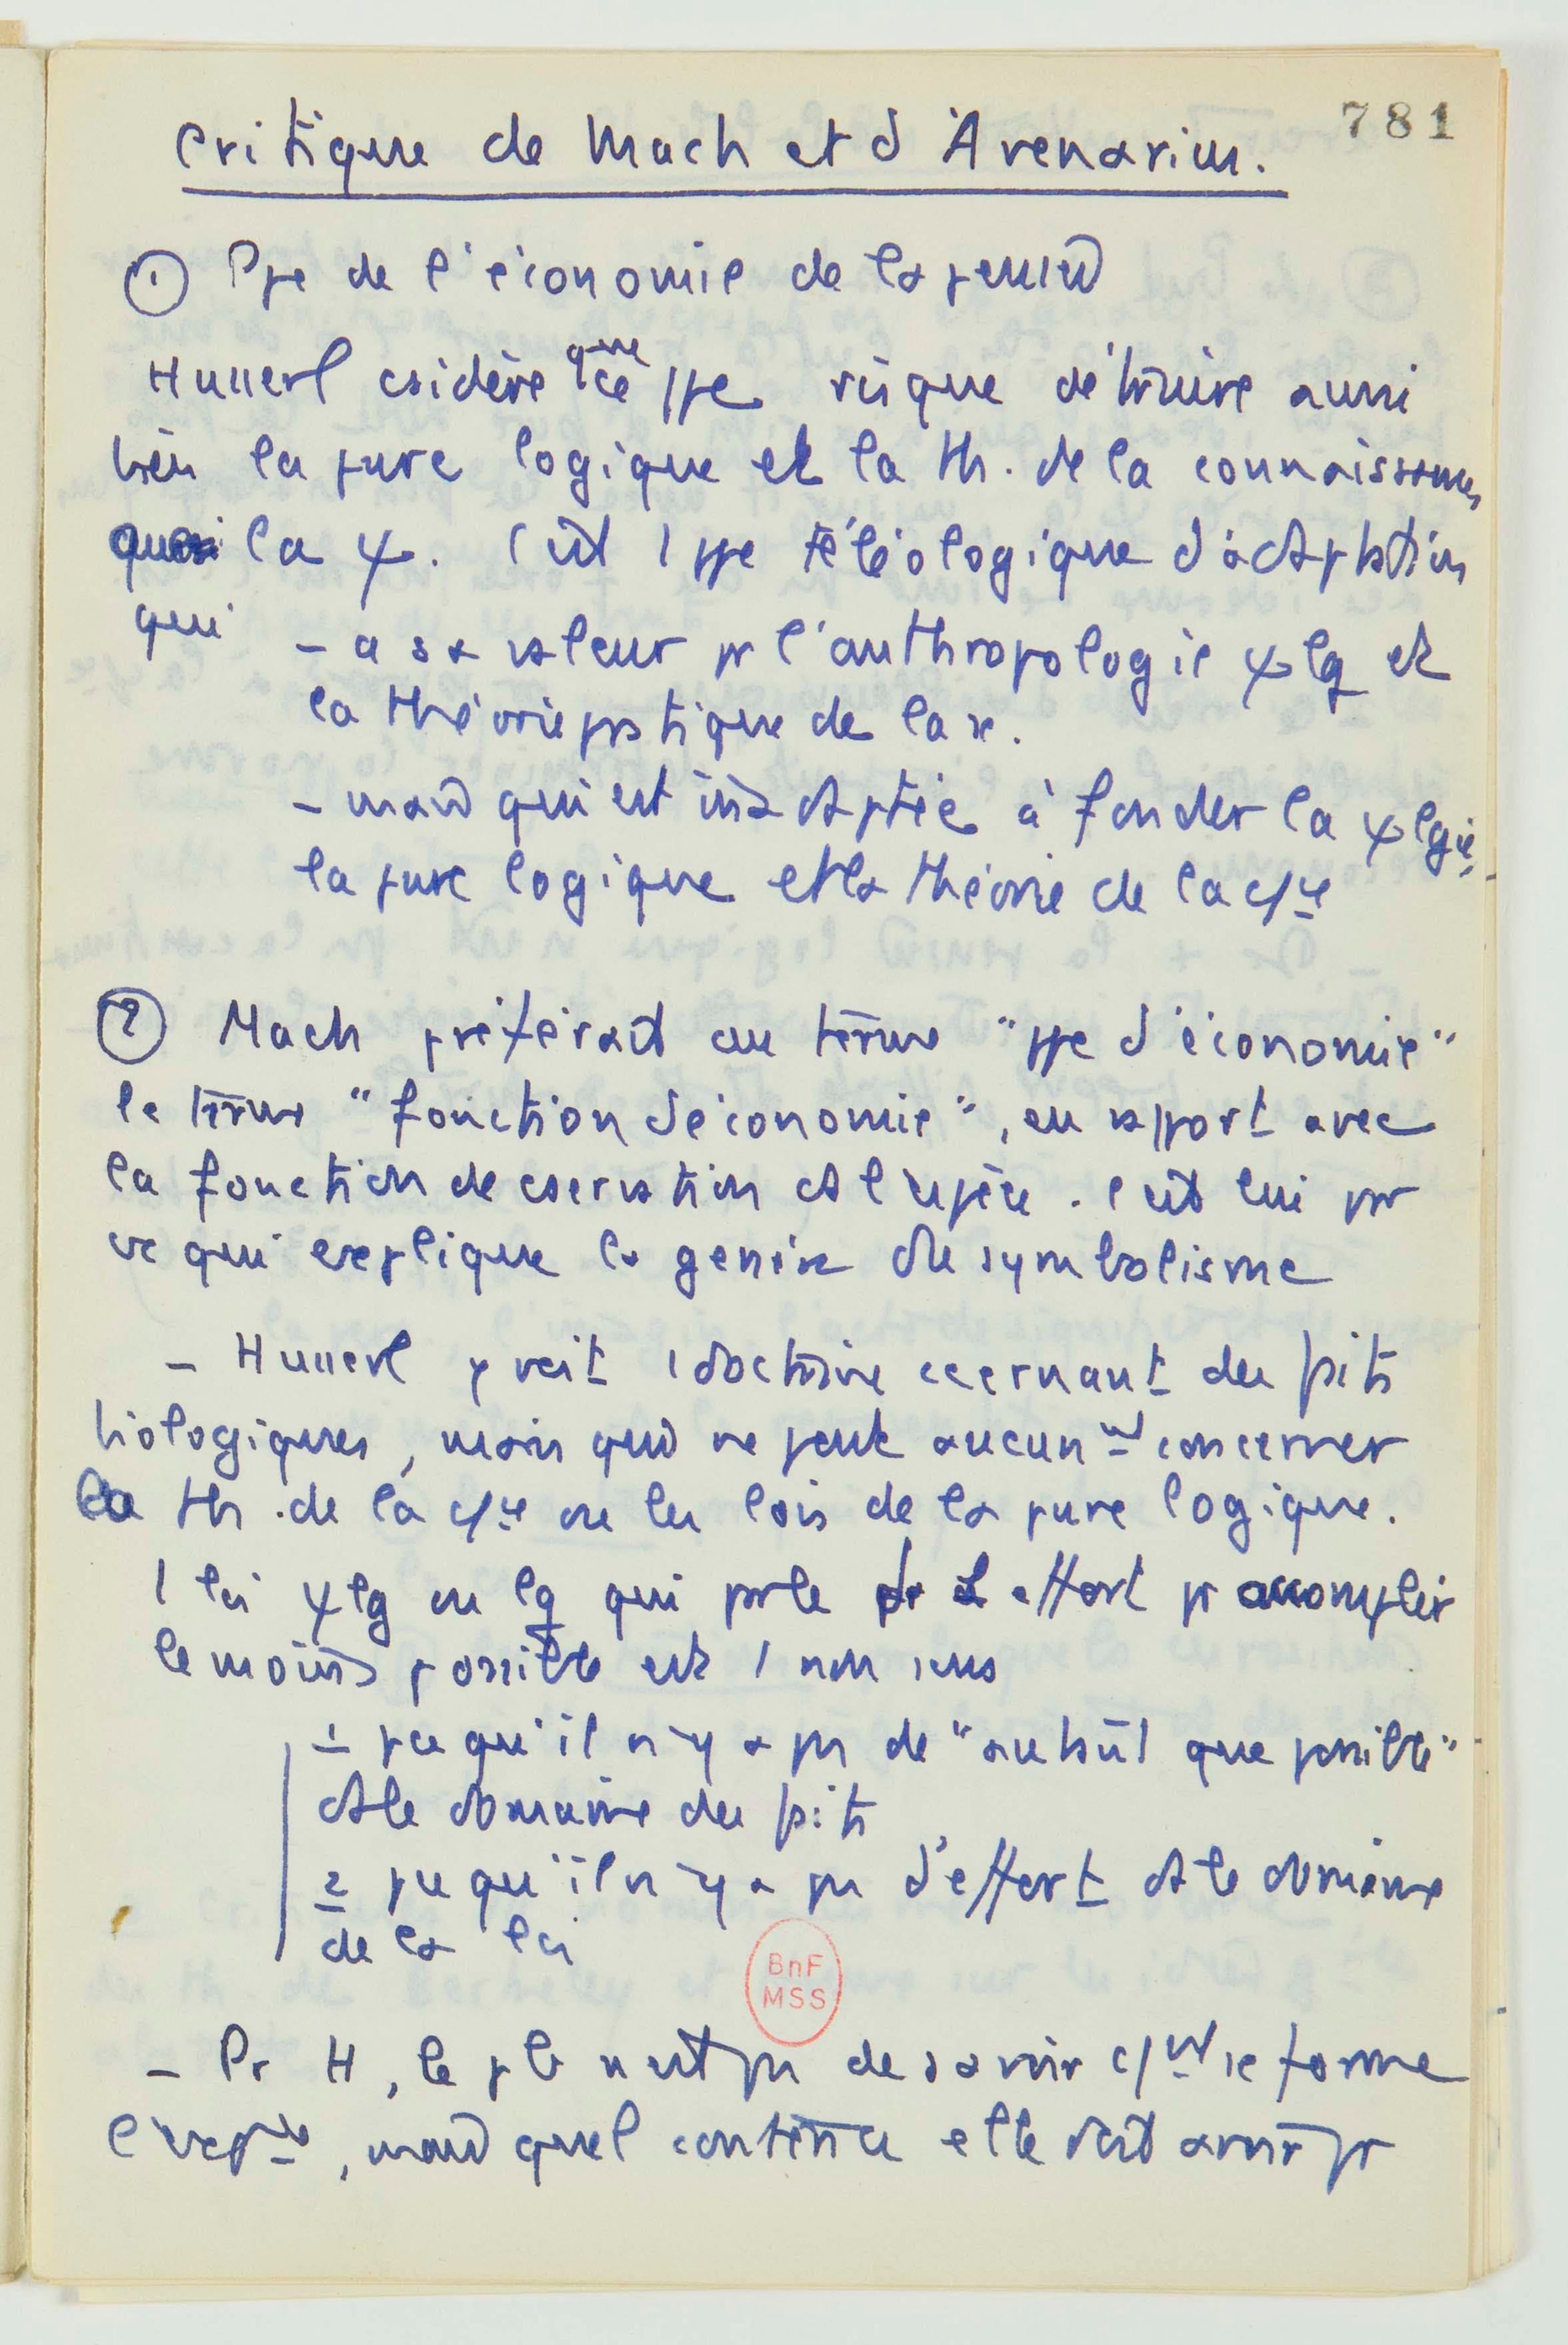 781
Critique de Mach et d'Avenarius.
① Ppe de l'économie de la pensée
Husserl csidère que ce ppe risque détruire aussi
bien la pure logique et la th. de la connaissance
que la ψ. C'est 1 ppe téléologique d'adaptation
qui - a sa valeur pr l'anthropologie ψlg et
la théorie pratique de la sc.
- mais qui est inadaptée à fonder la ψlgie,
la pure logique et la théorie de la c/ce
② Mach préférait au terme "ppe d'économie"
le terme "fonction d'économie", en rapport avec
la fonction de cservation de l'espèce. C'est lui pr
ce qui explique la genèse du symbolisme
- Husserl y voit 1 doctrine ccernant des faits
biologiques, mais qui ne peut aucunmt concerner
la th. de la c/ce ou les lois de la pure logique.
1 loi ψlg ou lg qui parle d'effort pr accomplir
le moins possible est 1 non sens
1 pce qu'il n'y a pas de "autant que possible"
ds le domaine des faits
2 pce qu'il n'y a pas d'effort ds le domaine
de la loi
BnF
MSS
- Pr H, le pb n'est pas de savoir c/mt se forme
l'expce, mais quel contenu elle doit avoir pr